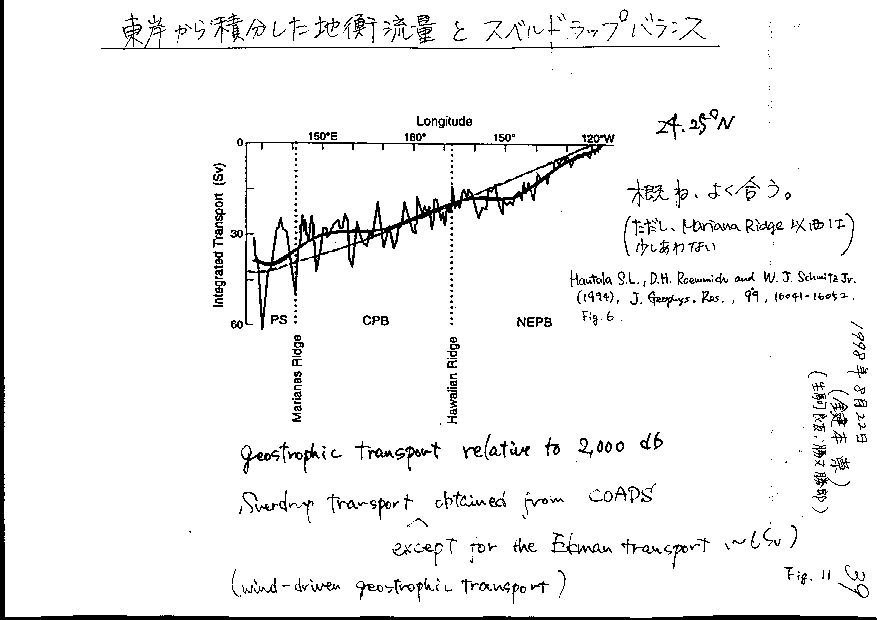 東岸から積分した地衡流量とスベルドラップバランス
Longitude
150°E 180° 150° 120°W
24.25°N
Integrated Transport (Sv)
0
30
60
PS
CPB
NEPB
Marianas Ridge
Hawaiian Ridge
概ね、よく合う。
(ただし、Mariana Ridge 以西は
少しあわない)
Hautala S.L., D.H. Roemmich and W.J. Schmitz Jr.
(1994), J. Geophys. Res., 99, 16041-16052.
Fig. 6.
1998年8月22日
geostrophic transport relative to 2,000 db
Sverdrup transport obtained from COADS
except for the Ekman transport
(wind-driven geostrophic transport)
Fig. 11
39